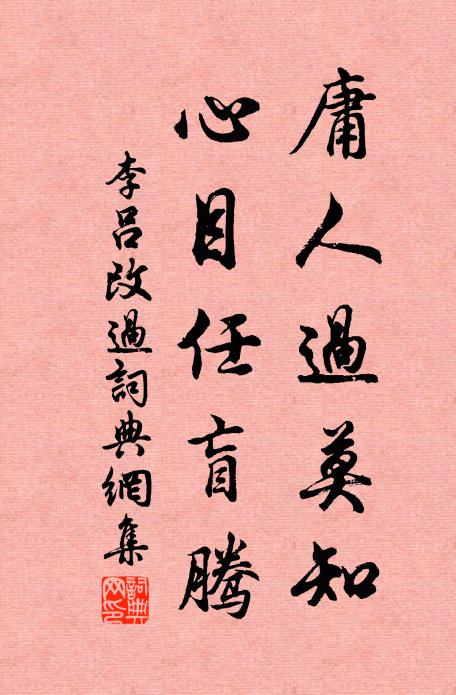 庸人過莫知
心目任盲騰
李呂改過詞典網集
詞典網印